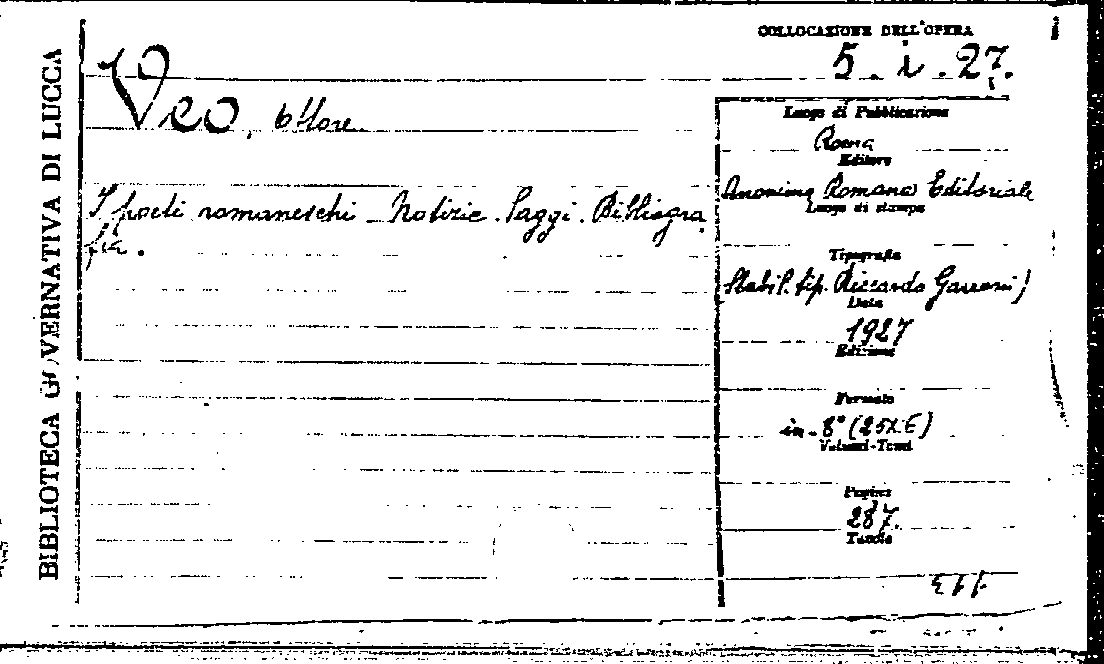 BIBLIOTECA GOVERNATIVA DI LUCCA
COLLOCAZIONE DELL'OPERA
5. i. 27.
Veo, Ettore
I poeti romaneschi - Notizie. Saggi. Bibliogra
fia.
Luogo di Pubblicazione
Roma
Editore
Anonima Romana Editoriale
Luogo di stampa
Tipografia
Stabil. tip. Riccardo Garroni)
Data
1927
Edizione
Formato
in-8° (25x
Volumi-Tomi
Pagine
287.
Tavole